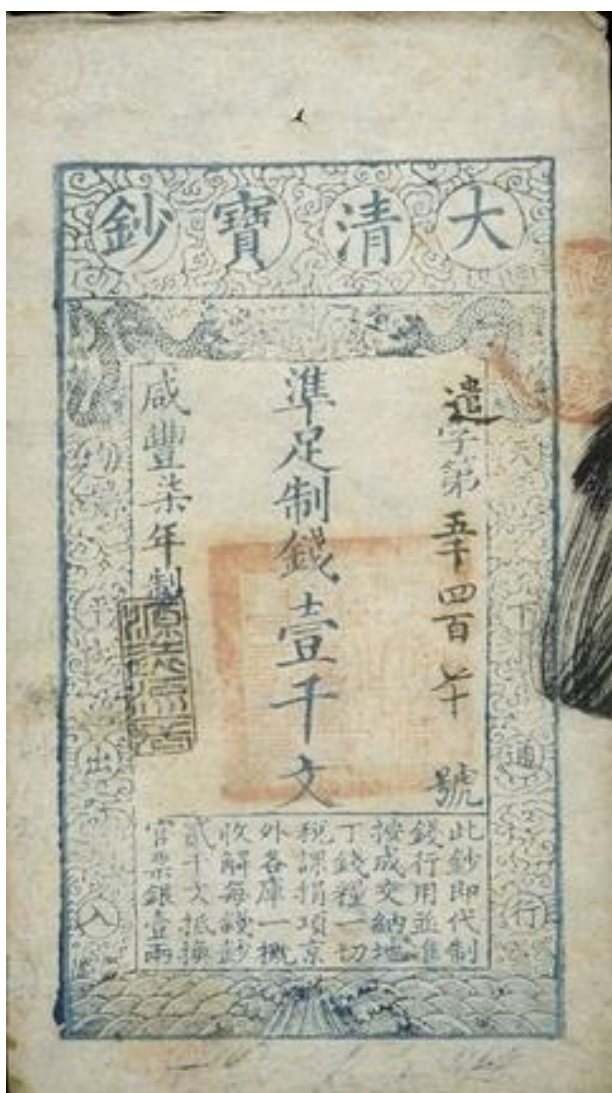 大清寶鈔
天下通行
遣字第五千四百七十號
準足制錢壹千文
咸豐柒年製
均平出入
此鈔即代制
錢行用並準
按成交納地
丁錢糧一切
稅課捐項京
外各庫一概
收解每錢鈔
貳千文抵換
官票銀壹兩